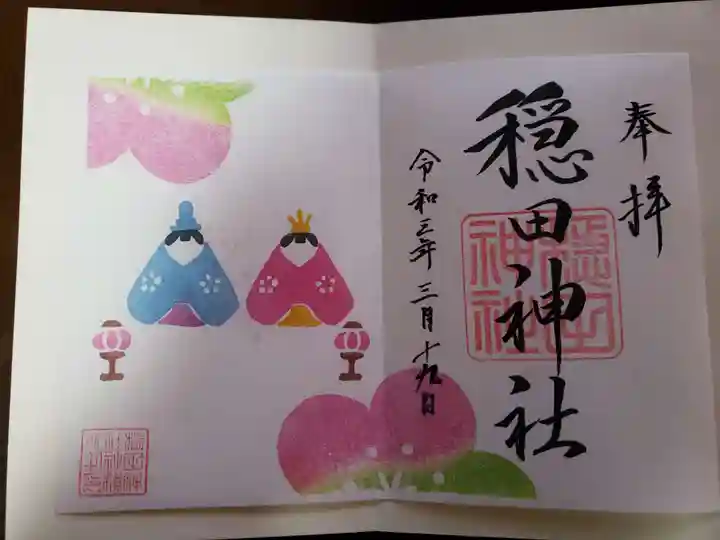 奉拝
穏田神社
令和三年三月十九日
穏田神社